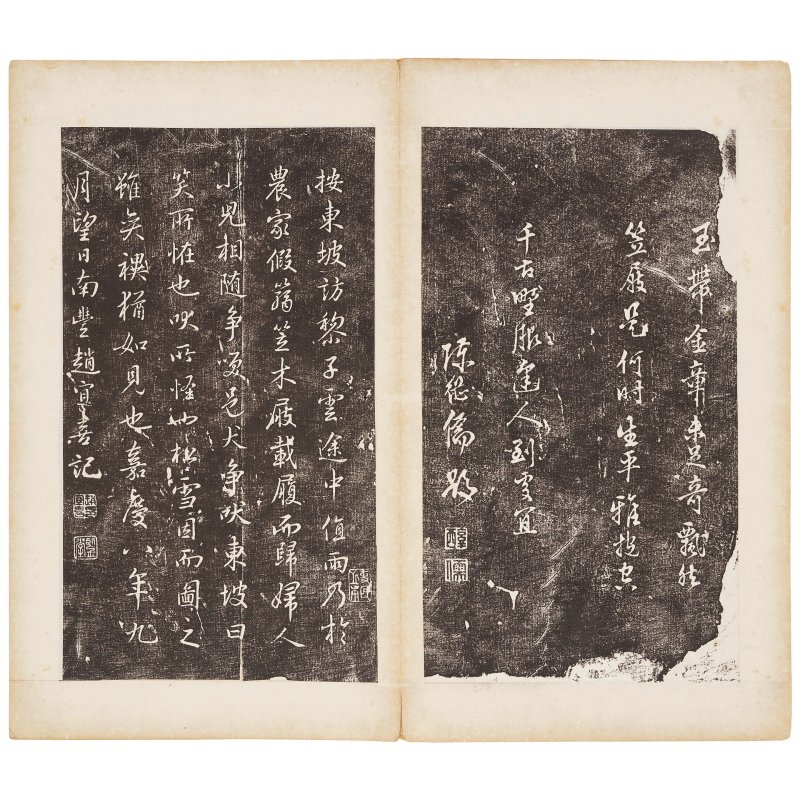 玉帶金章未足奇飄然
笠屐是何時生平雅抱空
千古野服逢人到處宜
陳繼儒題
醇儒
按東坡訪黎子雲途中值雨乃於
農家假篛笠木屐載履而歸婦人
小兒相隨爭笑邑犬爭吠東坡曰
笑所恠也吠所怪也松雪因而圖之
雖猶如見也嘉慶八年九
月望日南豐趙宜喜記